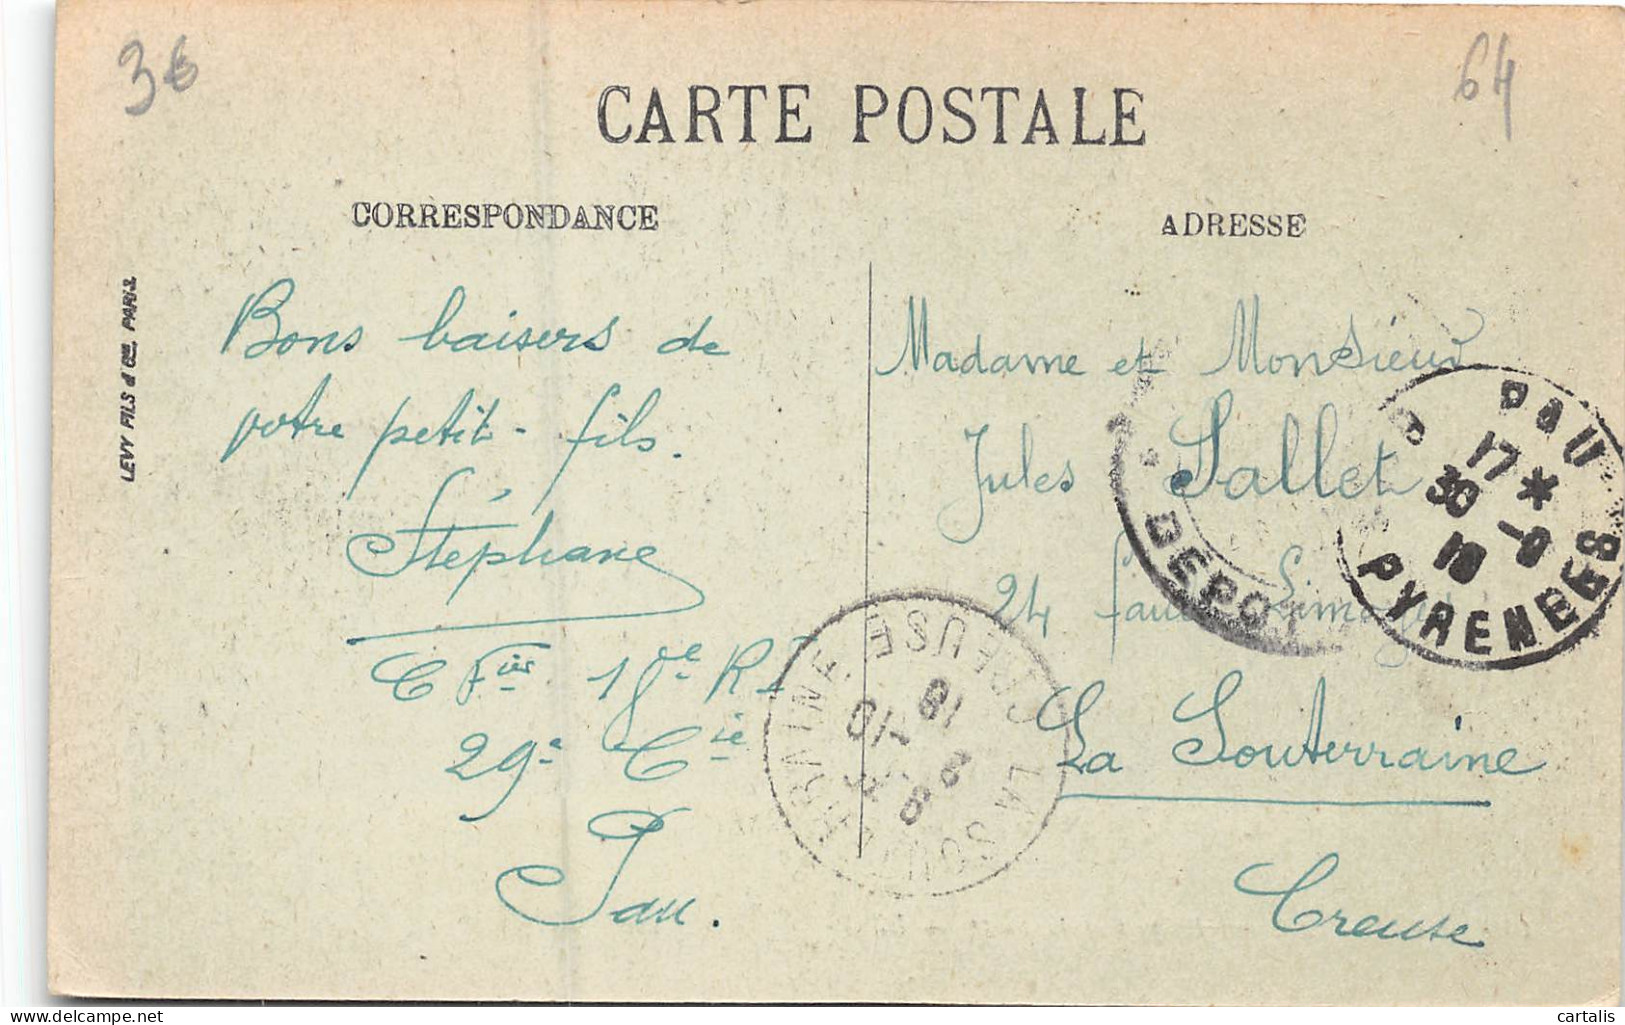 3€
64
CARTE POSTALE
CORRESPONDANCE
ADRESSE
LEVY FILS & Cie, PARIS
Bons baisers de
votre petit-fils.
Stéphane
29e Cie
Pau.
Madame et Monsieur
Jules Sallet
24 Limoges
La Souterraine
Creuse
PAU
17 *
30 -9
18
PYRENEES
DEPOT
LA SOUTERRAINE
CREUSE
2 -10
18
cartalis
www.delcampe.net